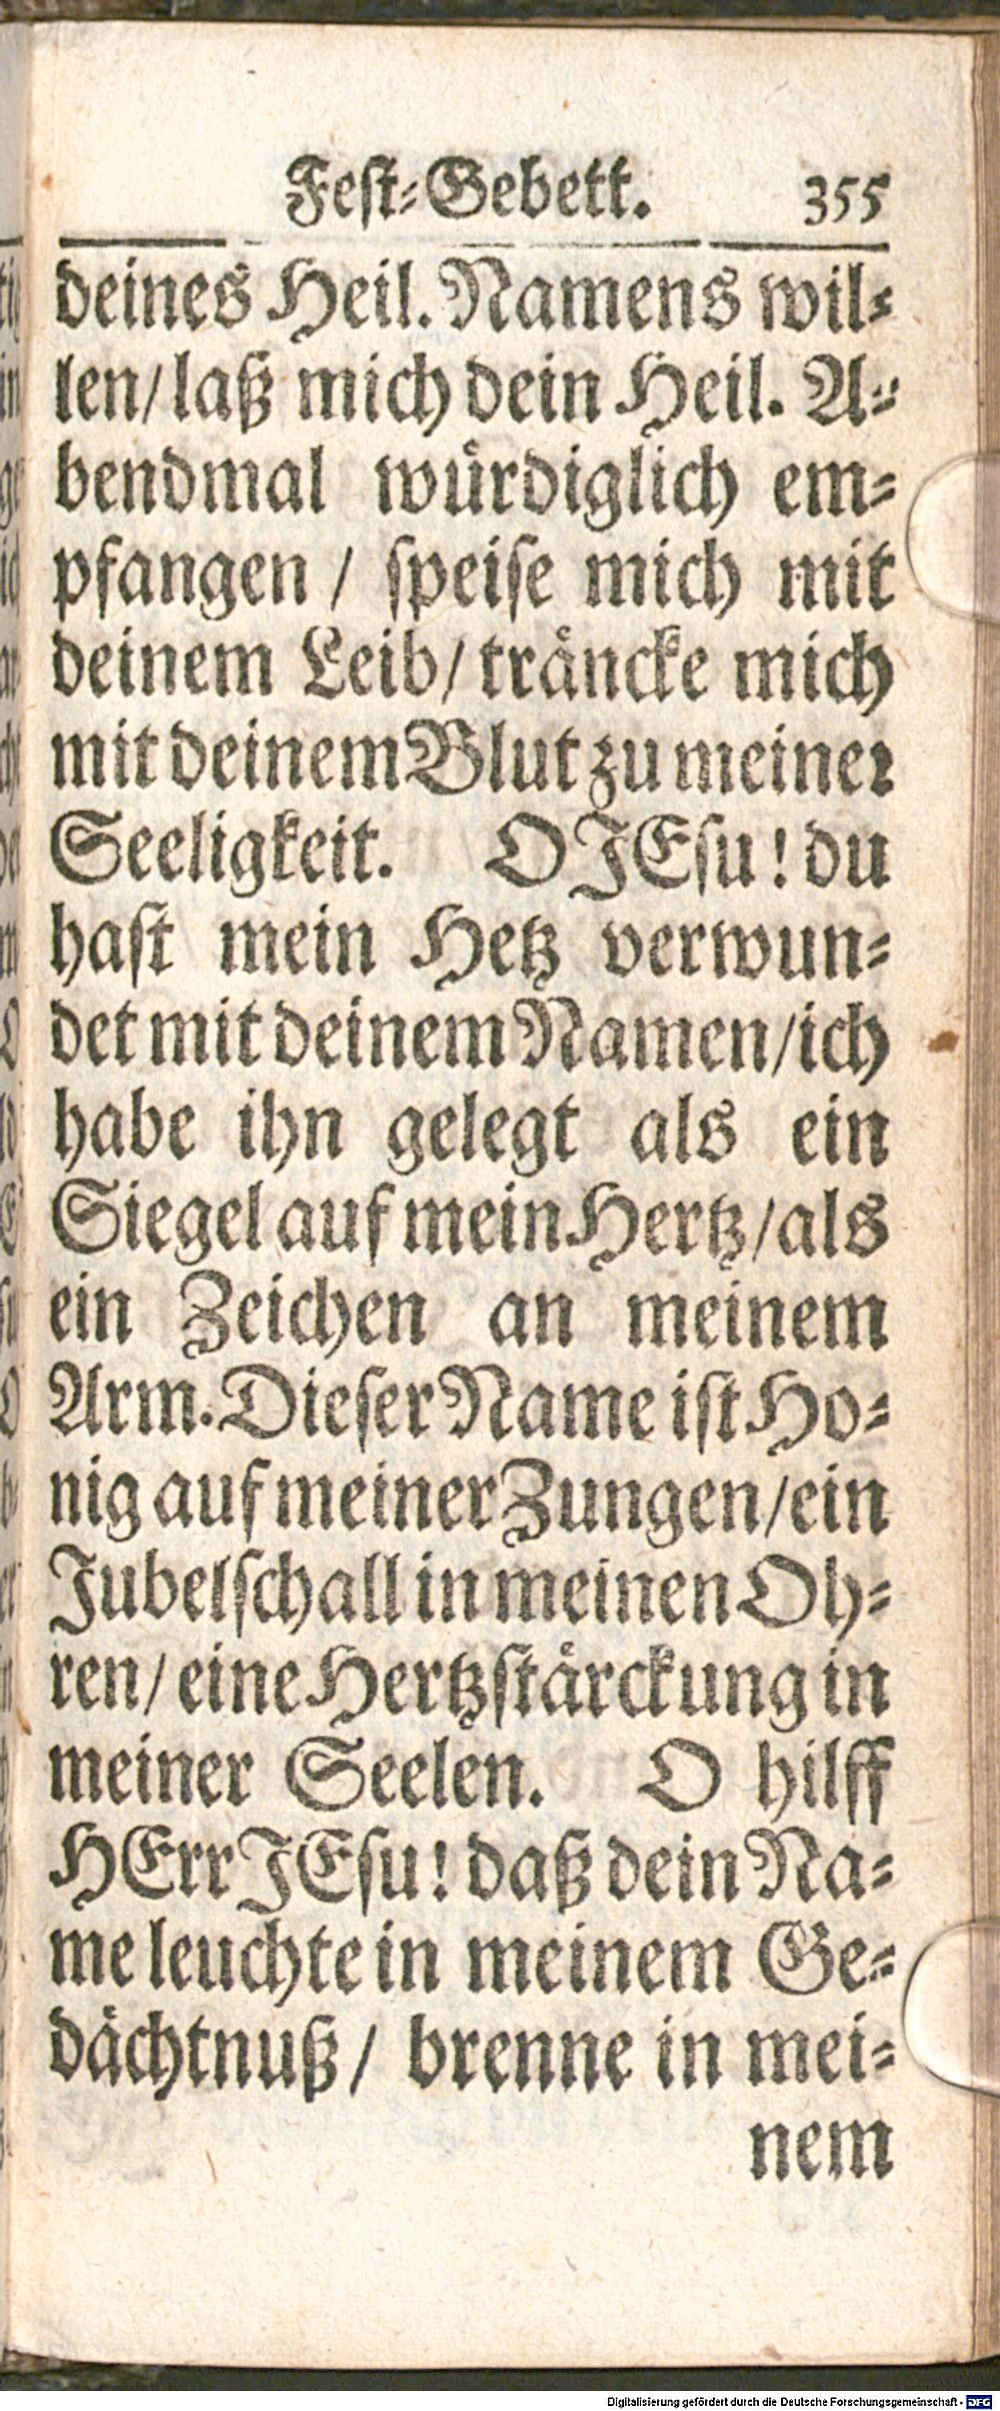 Feſt⸗Gebett. 355
deines Heil. Namens wil⸗
len/ laß mich dein Heil. A⸗
bendmal wuͤrdiglich em⸗
pfangen / ſpeiſe mich mit
deinem Leib/ traͤncke mich
mit deinem Blut zu meineꝛ
Seeligkeit. O JEſu! du
haſt mein Hetz verwun⸗
det mit deinem Namen/ich
habe ihn gelegt als ein
Siegel auf mein Hertz/als
ein Zeichen an meinem
Arm. Dieſer Name iſt Ho⸗
nig auf meiner Zungen/ein
Jubelſchall in meinen Oh⸗
ren/ eine Hertzſtaͤrckung in
meiner Seelen. O hilff
HErr JEſu! daß dein Na⸗
me leuchte in meinem Ge⸗
daͤchtnuß/ brenne in mei⸗
nem
Digitalisierung gefördert durch die Deutsche Forschungsgemeinschaft - DFG